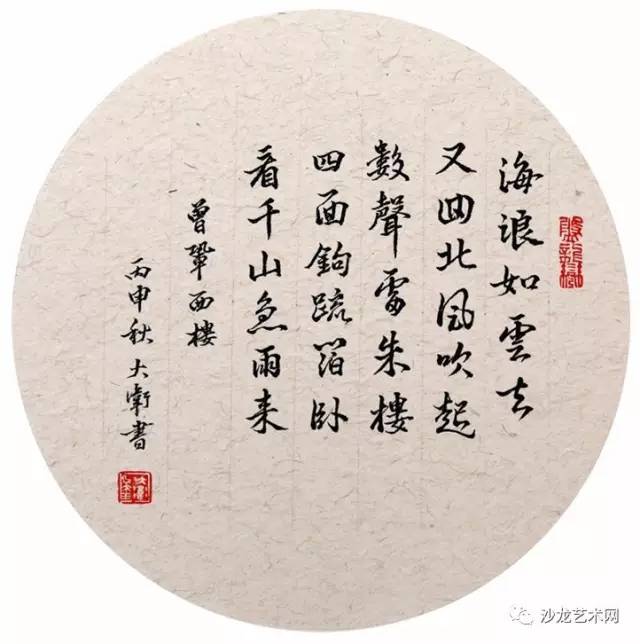 海浪如雲去
又回北風吹起
數聲雷朱樓
四面鉤疏箔卧
看千山急雨来
曾鞏西樓
丙申秋 大書
沙龙艺术网